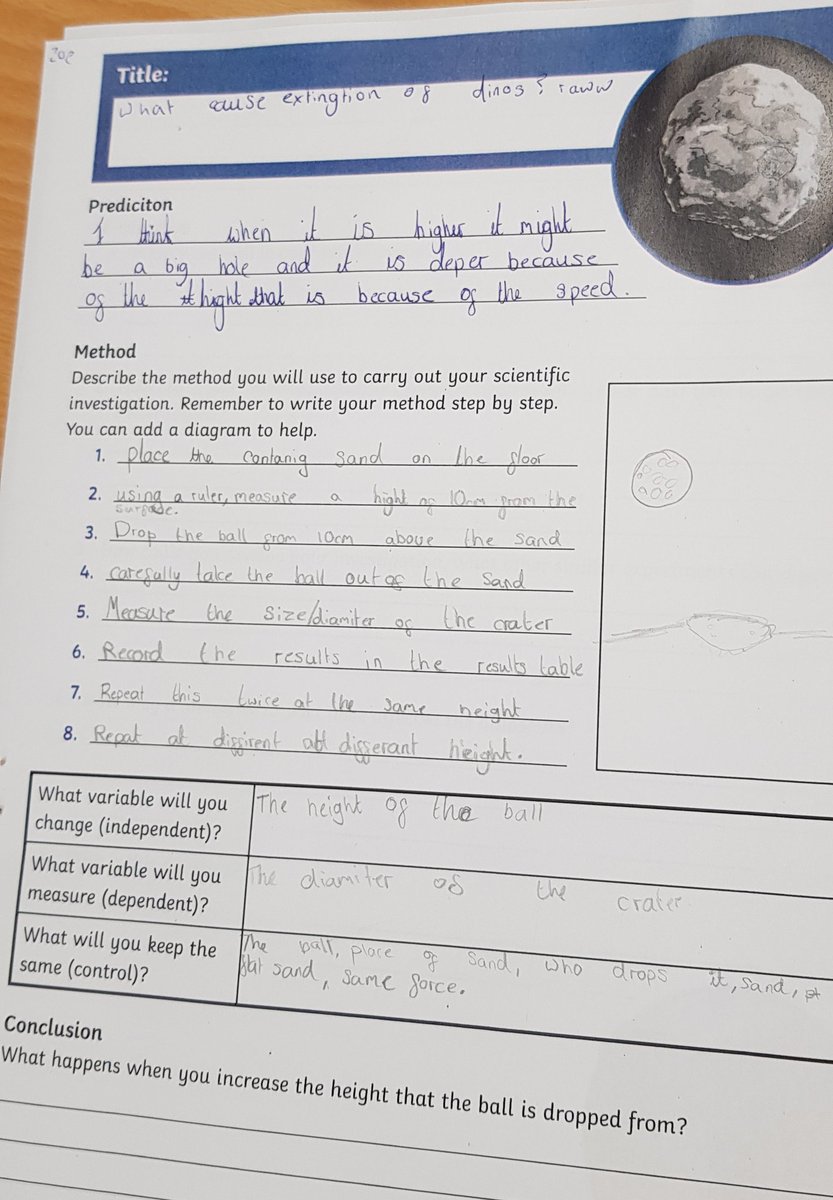 202
Title:
what cause extingtion of dinos? raww
Prediciton
I think when it is higher it might
be a big hole and it is deper because
of the hight that is because of the speed.
Method
Describe the method you will use to carry out your scientific
investigation. Remember to write your method step by step.
You can add a diagram to help.
1. place the contanig sand on the floor
2. using a ruler, measure a hight of 10cm from the
surface.
3. Drop the ball from 10cm above the sand
4. carefully take the ball out of the sand
5. Measure the size/diamiter of the crater
6. Record the results in the results table
7. Repeat this twice at the same height
8. Repat at diffirent differant hieight.
What variable will you
change (independent)?
The height of the ball
What variable will you
measure (dependent)?
The diamiter of the crater
What will you keep the
same (control)?
The ball, place of sand, who drops it, sand,
flat sand, same force.
Conclusion
What happens when you increase the height that the ball is dropped from?